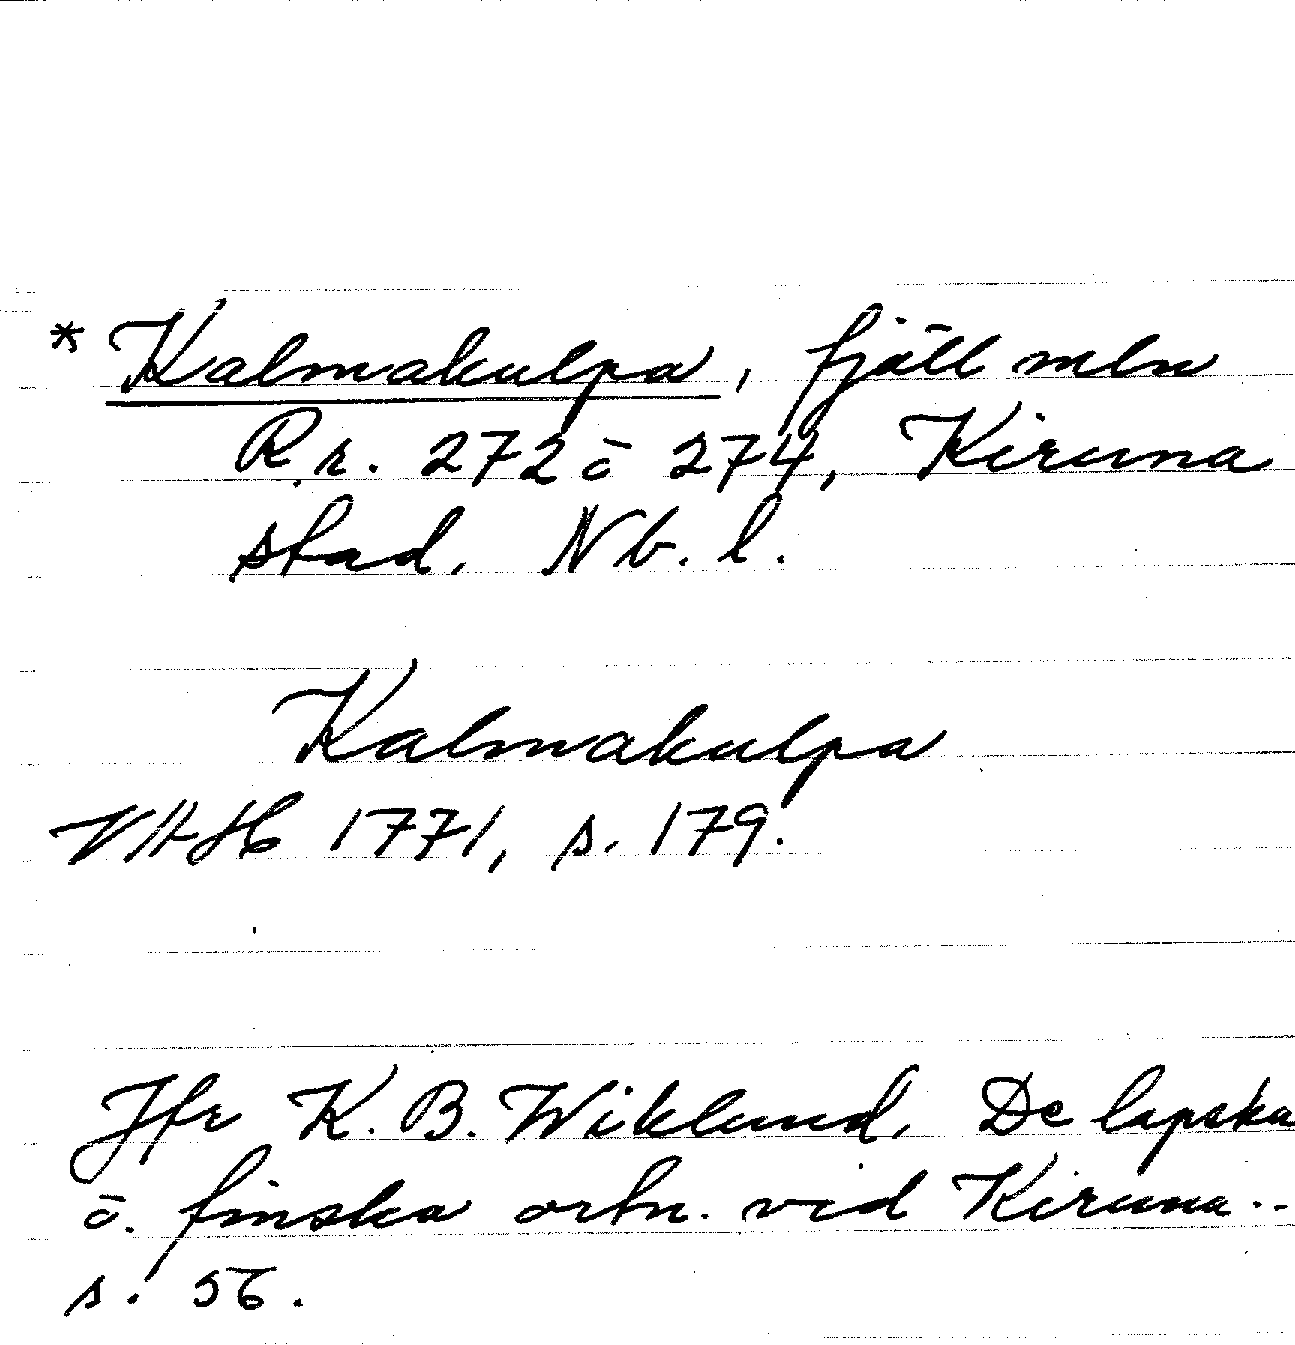 *Kalmakulpa, fjäll mln
R.r. 272 o 274, Kiruna
stad. Nb. l.
Kalmakulpa
VHAH 1771, s. 179.
Jfr K. B. Wiklund, De lapska
o. finska ortn. vid Kiruna..
s. 56.